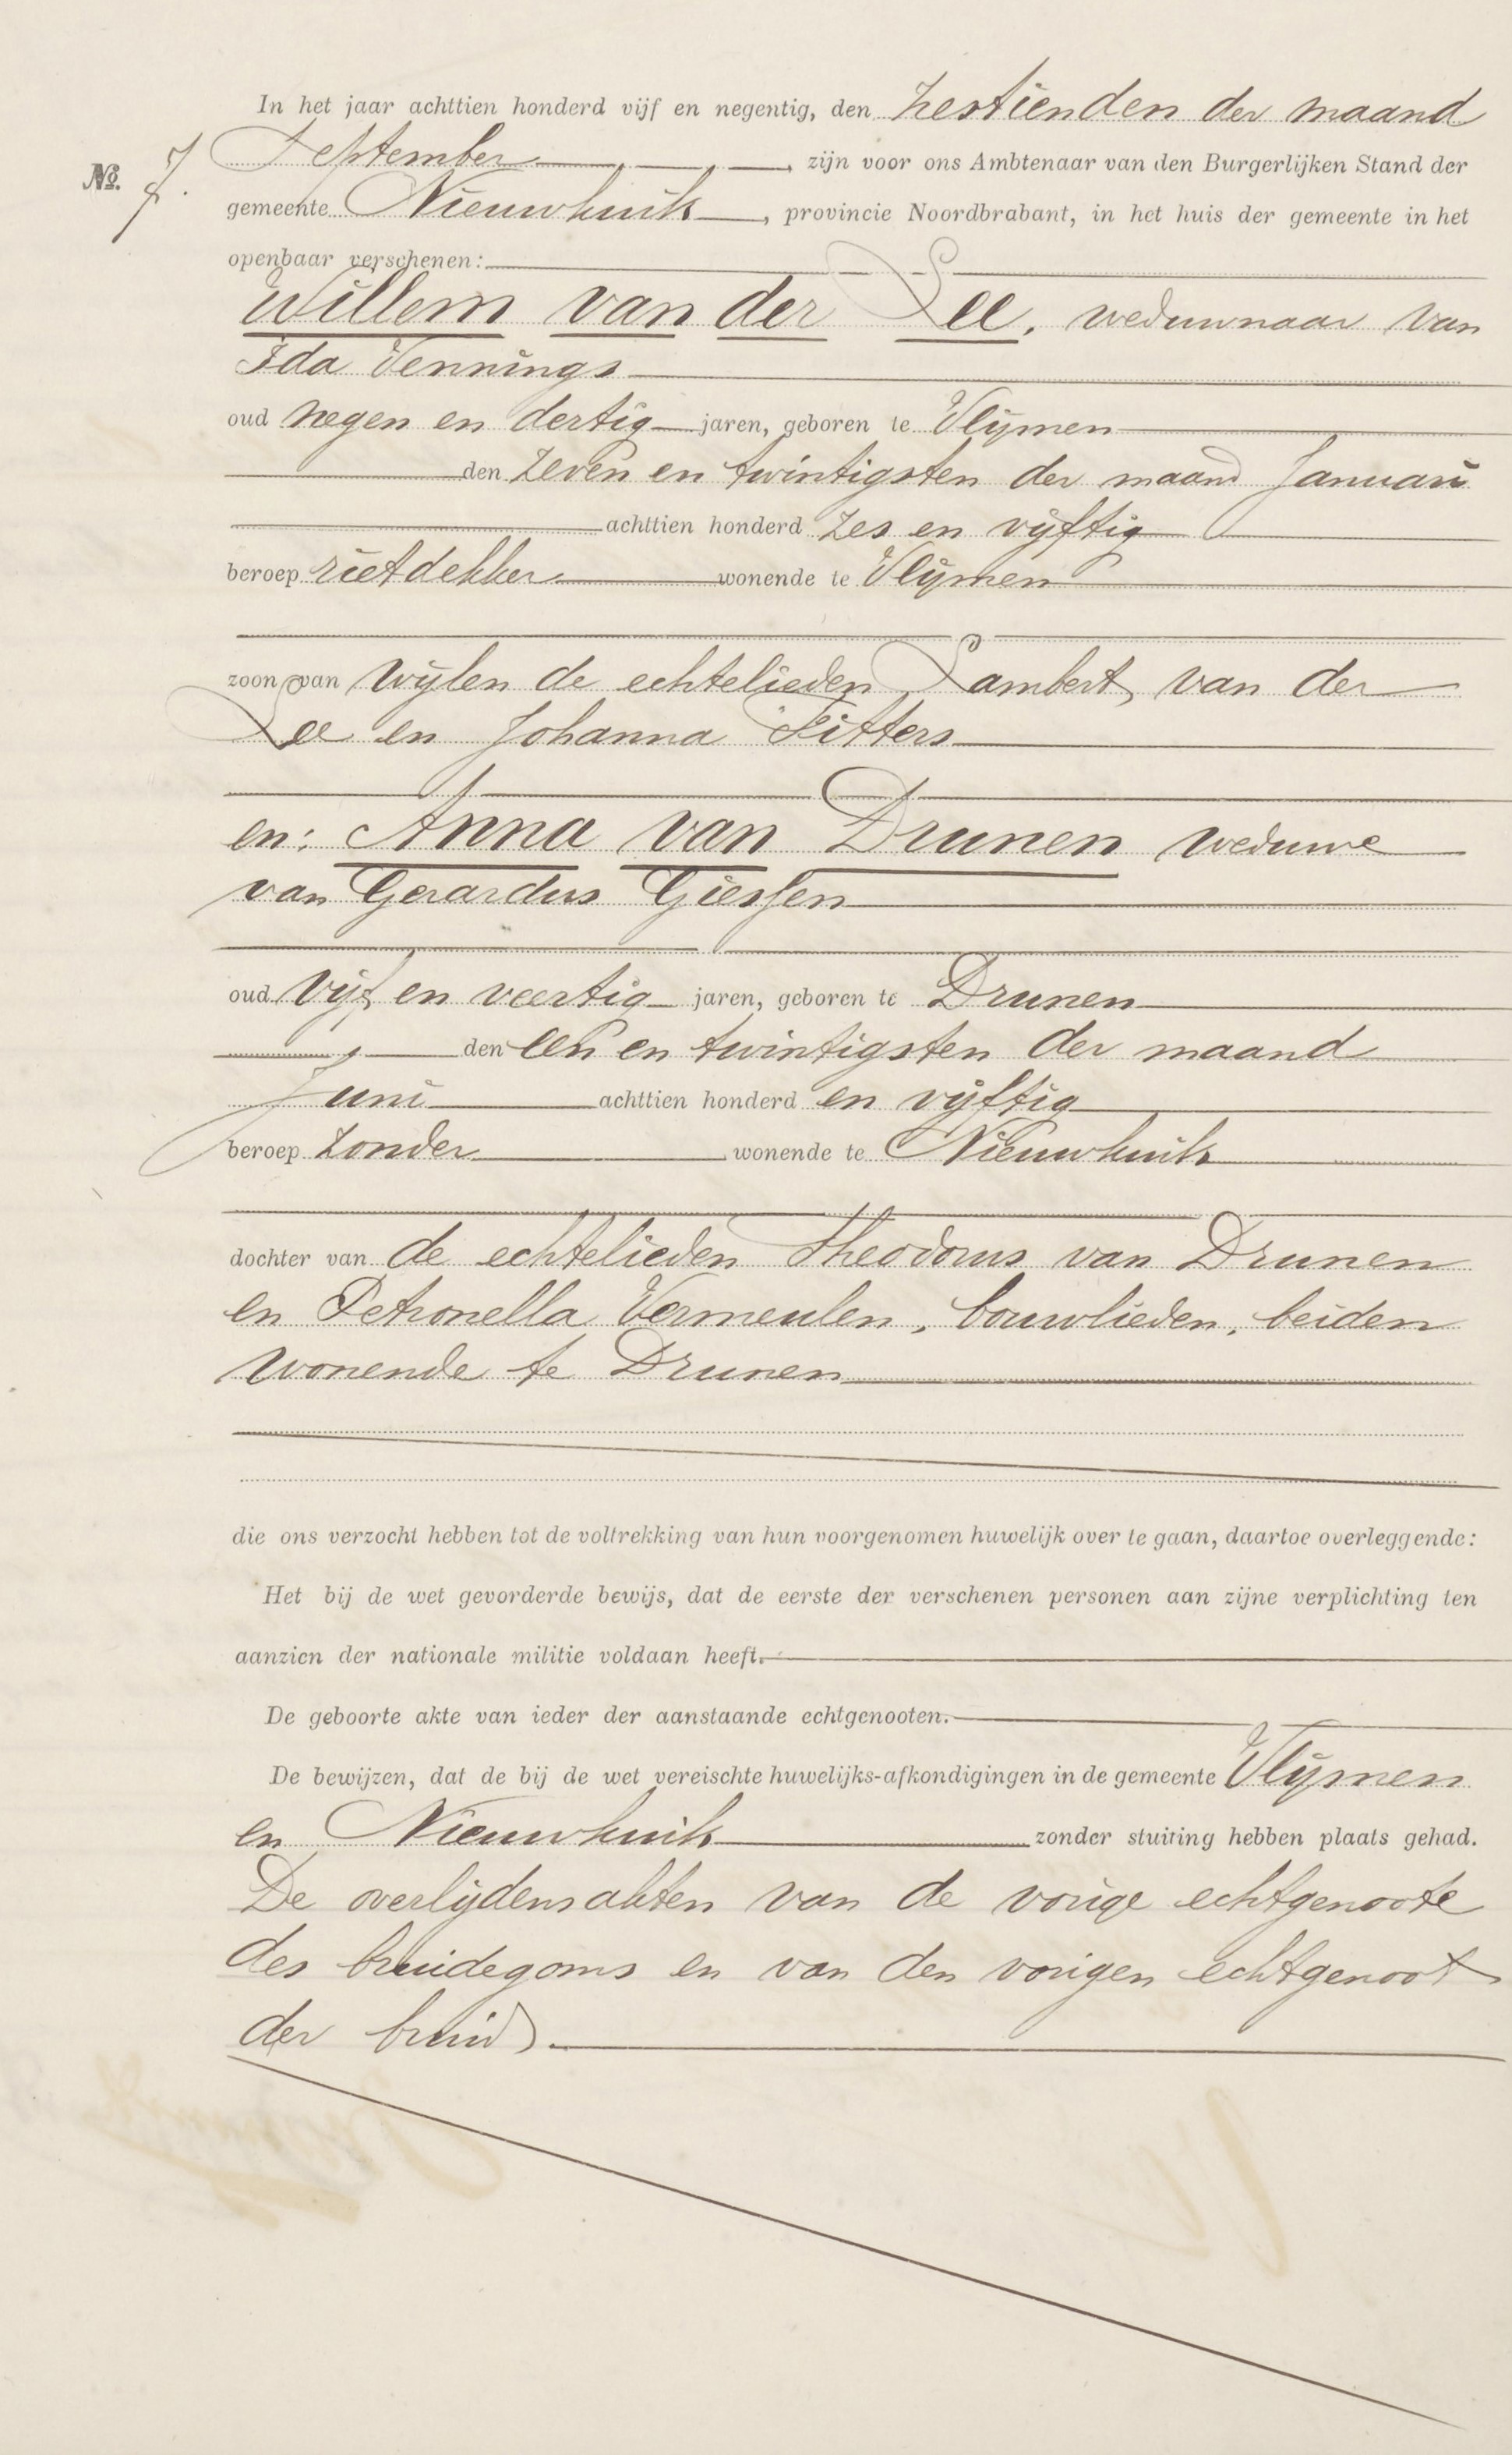 In het jaar achttien honderd vijf en negentig, den zestienden der maand
September, zijn voor ons Ambtenaar van den Burgerlijken Stand der
No. 7.
gemeente Nieuwkuik, provincie Noordbrabant, in het huis der gemeente in het
openbaar verschenen:
Willem van der Lee, weduwnaar van
Ida Vennings
oud negen en dertig jaren, geboren te Vlijmen
den zeven en twintigsten der maand Januari
achttien honderd zes en vijftig
beroep rietdekker wonende te Vlijmen
zoon van wijlen de echtelieden Lambert van der
Lee en Johanna Fitters
en: Anna van Drunen weduwe
van Gerardus Giessen
oud vijf en veertig jaren, geboren te Drunen
den een en twintigsten der maand
Juni achttien honderd en vijftig
beroep zonder wonende te Nieuwkuik
dochter van de echtelieden Theodorus van Drunen
en Petronella Vermeulen, bouwlieden, beiden
wonende te Drunen
die ons verzocht hebben tot de voltrekking van hun voorgenomen huwelijk over te gaan, daartoe overleggende:
Het bij de wet gevorderde bewijs, dat de eerste der verschenen personen aan zijne verplichting ten
aanzien der nationale militie voldaan heeft.
De geboorte akte van ieder der aanstaande echtgenooten.
De bewijzen, dat de bij de wet vereischte huwelijks-afkondigingen in de gemeente Vlijmen
en Nieuwkuik zonder stuiting hebben plaats gehad.
De overlijdensakten van de vorige echtgenoote
des bruidegoms en van den vorigen echtgenoot
der bruid.